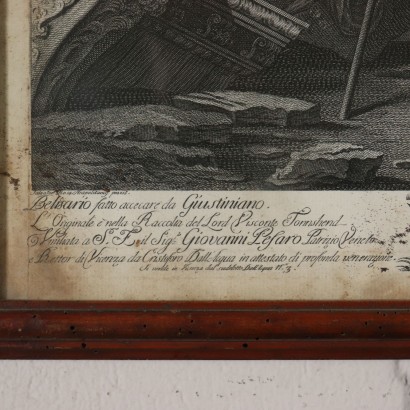 Belisario fatto accecare da Giustiniano.
L'Originale è nella Raccolta del Lord Visconte Townshend
a S. E. il Sigr. Giovanni Pesaro Patrizio Veneto
e Rettor di Vicenza da Cristoforo Dall'Aqua in attestato di profonda venerazione.
in Vicenza dal suddetto Dall'Aqua